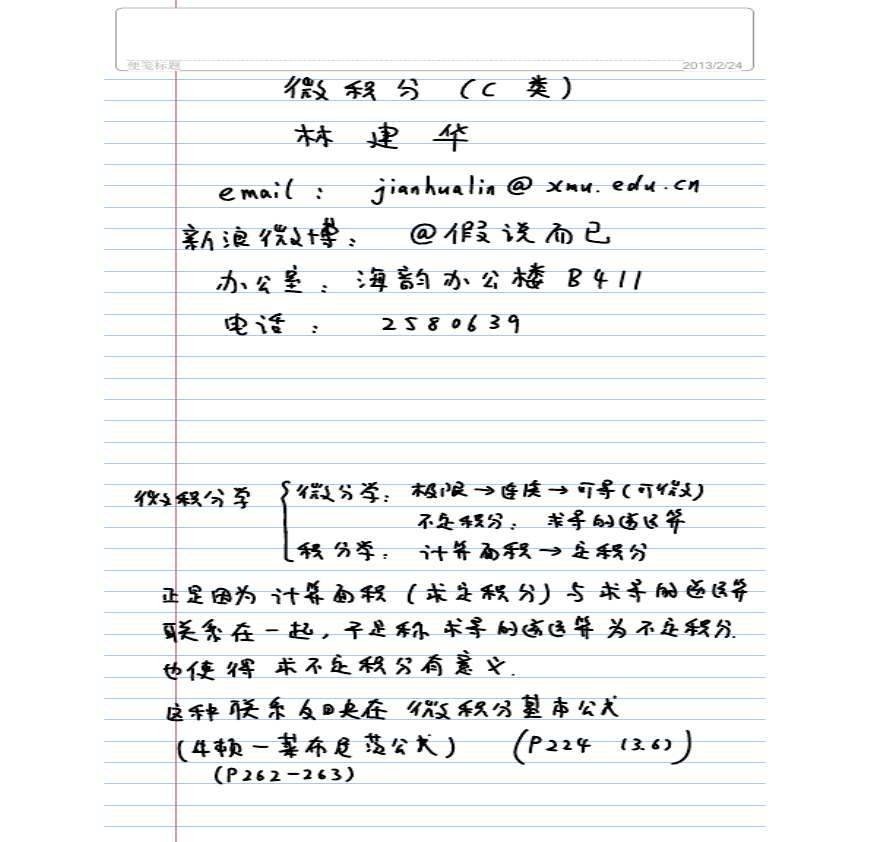 便笺标题 2013/2/24
微积分（C 类）
林建华
email: jianhualin@xmu.edu.cn
新浪微博: @假说而已
办公室: 海韵办公楼 B411
电话: 2580639
微积分学 { 微分学: 极限→连续→可导(可微)
不定积分: 求导的逆运算
积分学: 计算面积→定积分
正是因为计算面积(求定积分)与求导的逆运算
联系在一起, 于是称求导的逆运算为不定积分.
也使得求不定积分有意义.
这种联系反映在微积分基本公式
(牛顿-莱布尼茨公式) (P224 (3.6))
(P262-263)